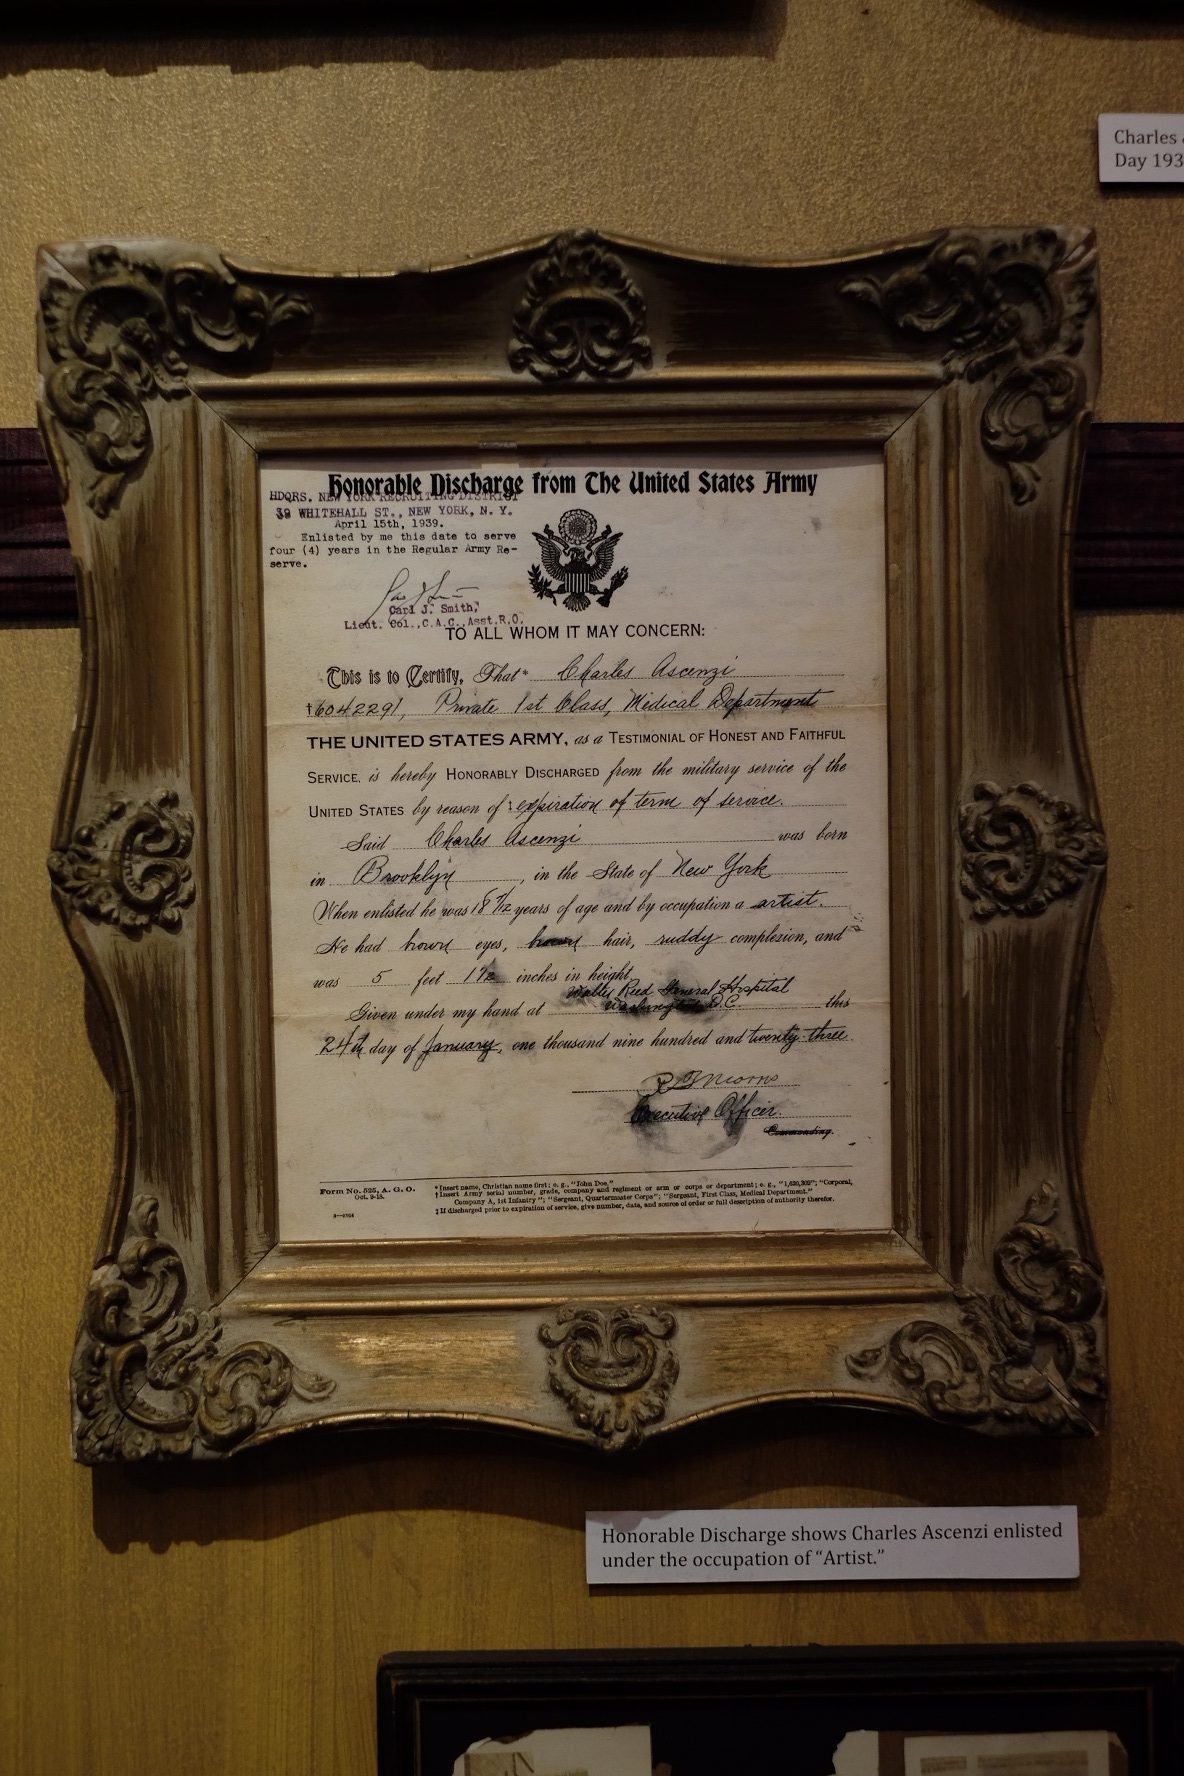 Charles
Day 193
Honorable Discharge from The United States Army
HDQRS. NEW YORK RECRUITING DISTRICT
39 WHITEHALL ST., NEW YORK, N. Y.
April 15th, 1939.
Enlisted by me this date to serve
four (4) years in the Regular Army Re-
serve.
Carl J. Smith,
Lieut. Col., C.A.C., Asst.R.O.
TO ALL WHOM IT MAY CONCERN:
This is to Certify, That* Charles Ascenzi
†6042291, Private 1st Class, Medical Department
THE UNITED STATES ARMY, as a TESTIMONIAL OF HONEST AND FAITHFUL
SERVICE, is hereby HONORABLY DISCHARGED from the military service of the
UNITED STATES by reason of ‡ expiration of term of service.
Said Charles Ascenzi was born
in Brooklyn, in the State of New York
When enlisted he was 18 7/12 years of age and by occupation a artist.
He had brown eyes, brown hair, ruddy complexion, and
was 5 feet 1 1/2 inches in height
Given under my hand at Walter Reed General Hospital
Washington D.C. this
24th day of January, one thousand nine hundred and twenty-three
Executive Officer.
Commanding.
Form No. 525, A. G. O.
Oct. 9-18.
*Insert name, Christian name first; e. g., "John Doe."
†Insert Army serial number, grade, company and regiment or arm or corps or department; e. g., "1,620,302"; "Corporal,
Company A, 1st Infantry"; "Sergeant, Quartermaster Corps"; "Sergeant, First Class, Medical Department."
‡If discharged prior to expiration of service, give number, date, and source of order or full description of authority therefor.
Honorable Discharge shows Charles Ascenzi enlisted
under the occupation of “Artist.”